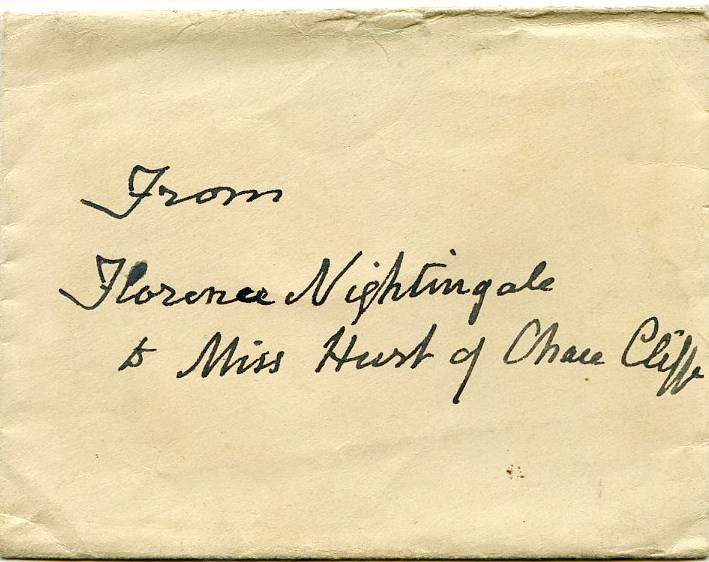 From
Florence Nightingale
to Miss Hurt of Chace Cliffe